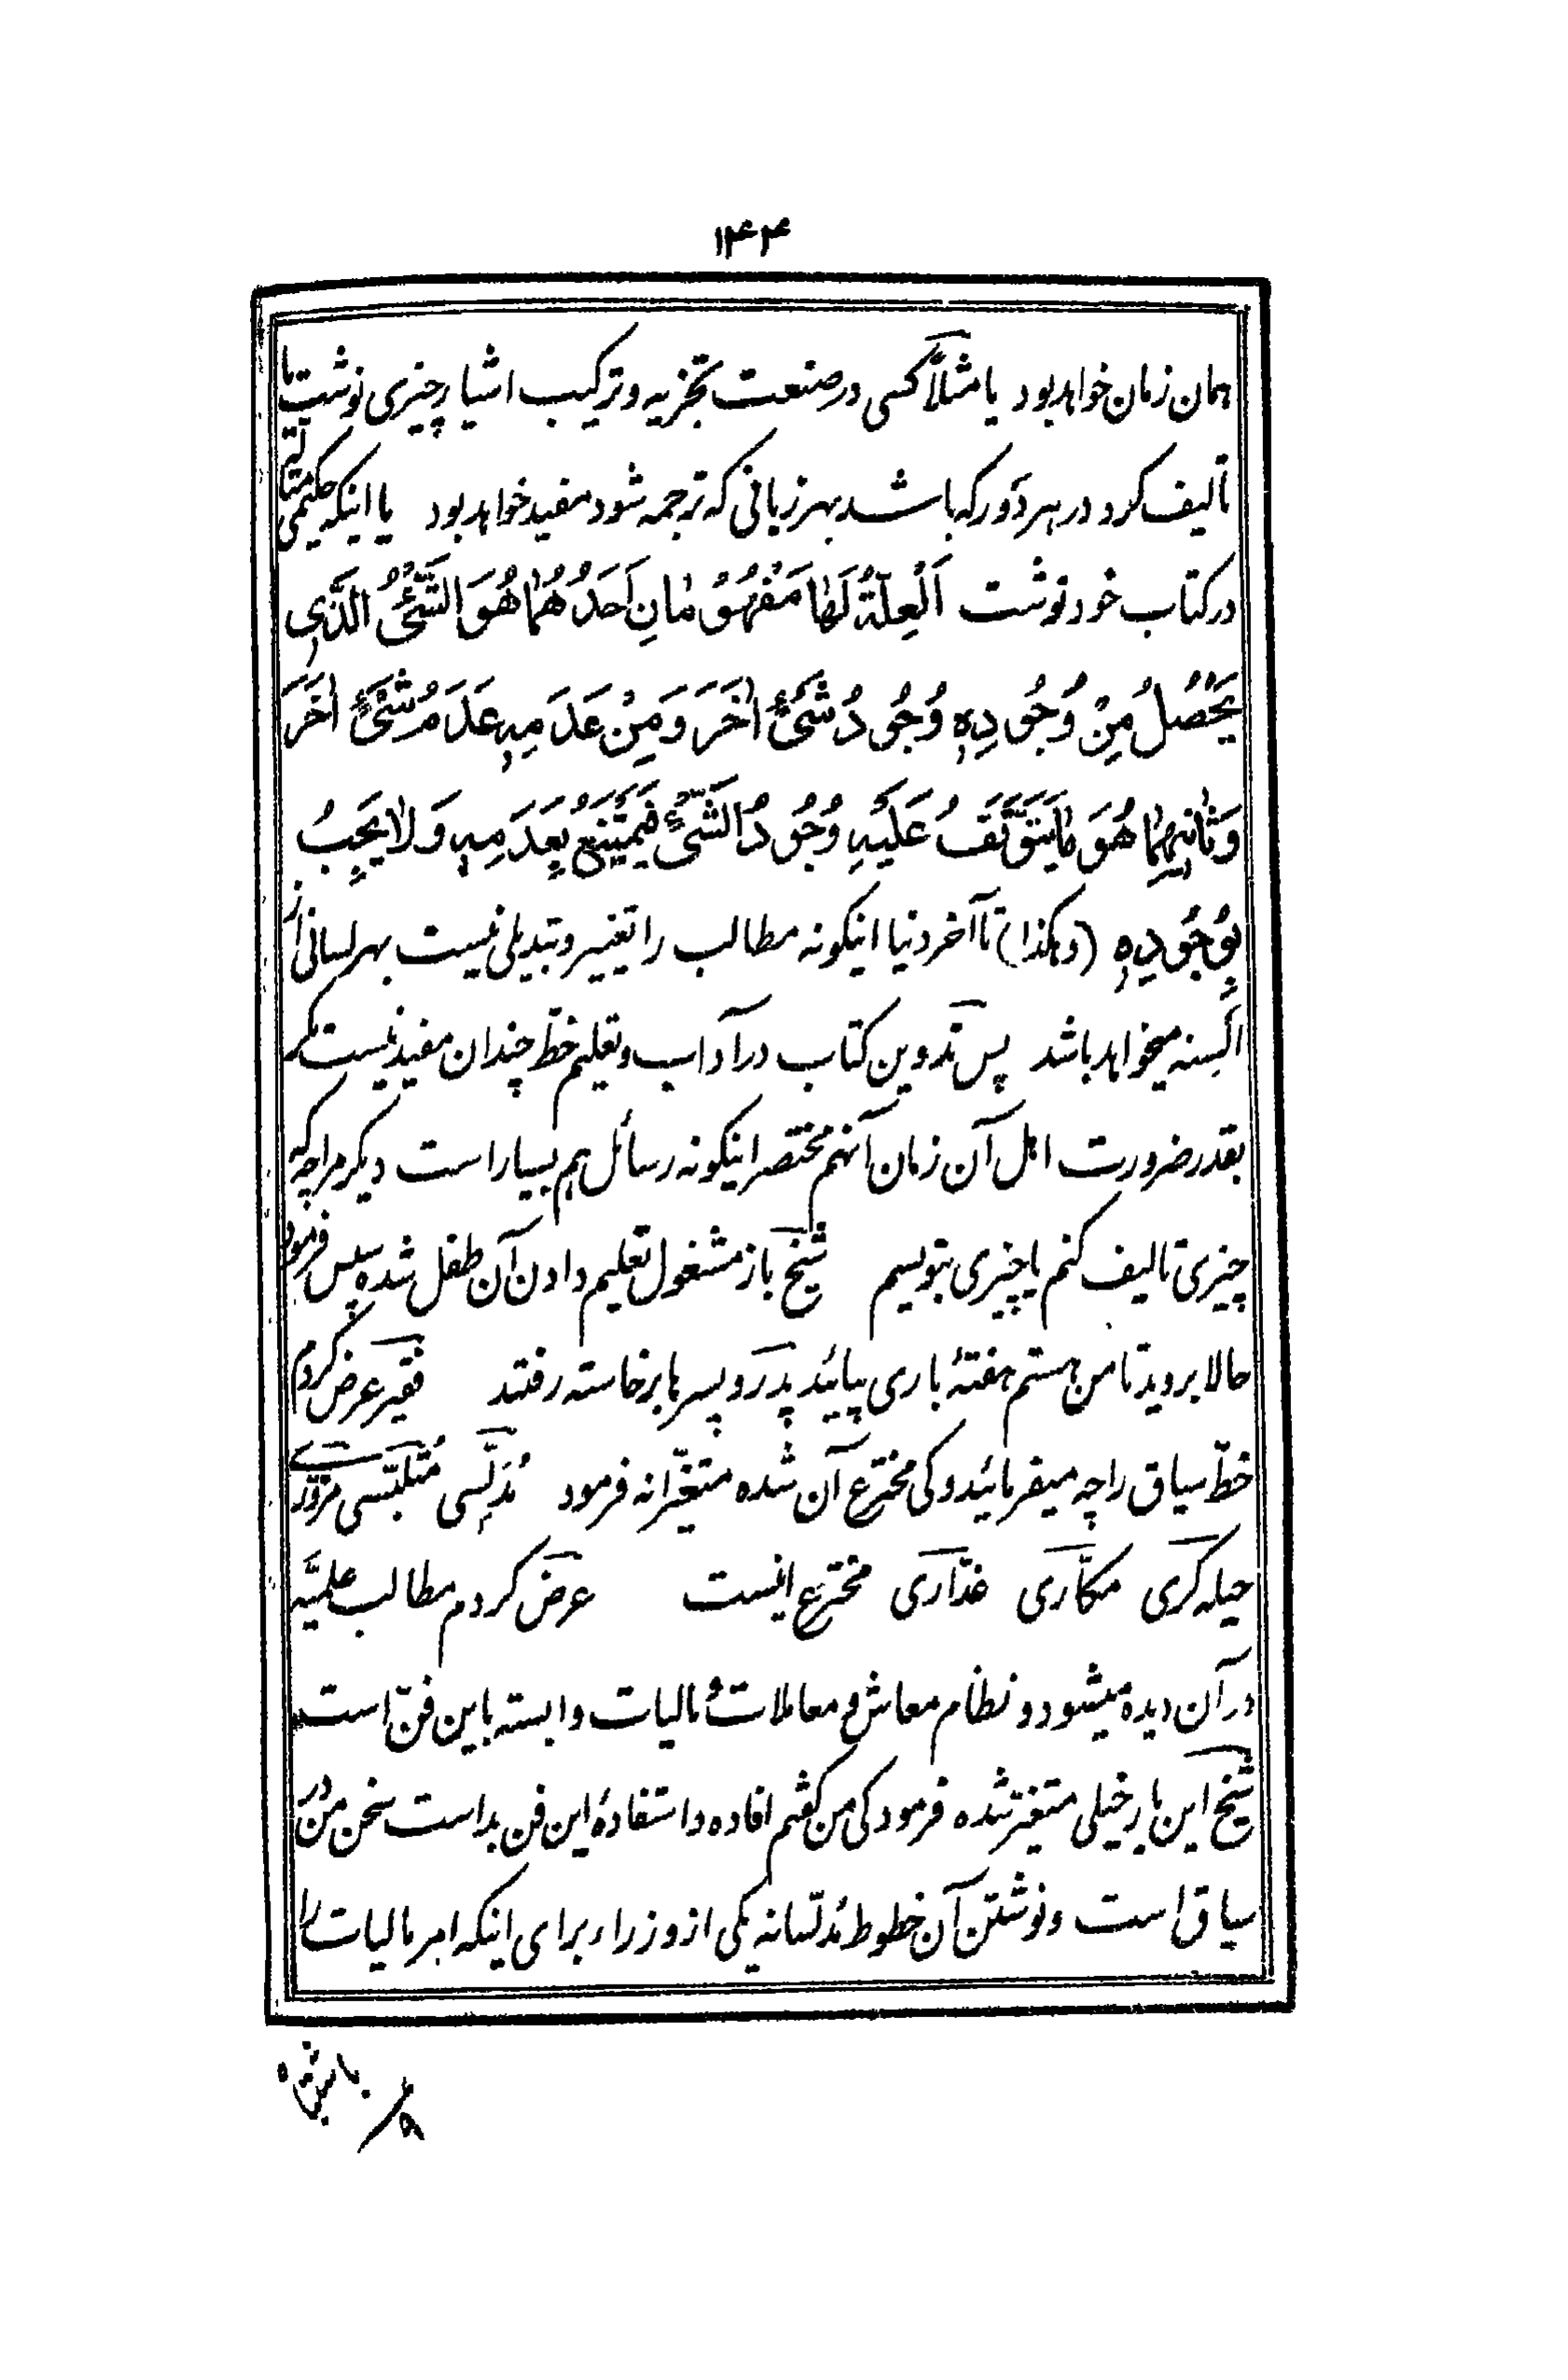 ۱۴۴
همان زمان خواهد بود یا مثلاً کسی در صنعت تجزیه و ترکیب اشیاء چیزی نوشت یا
تألیف کرد در هر دَور که باشد بهر زبانی که ترجمه شود مفید خواهد بود یا اینکه حکیمی متألّه
در کتاب خود نوشت اَلْعِلَّةُ لَهٰا مَفْهُوُمٰانِ اَحَدُهُمٰا هُوَ الشَّیْءُ الَّذی
یَحْصُلُ مِنْ وُجُودِهِ وُجُودُ شَیْءٍ اٰخَرَ وَمِنْ عَدَمِهِ عَدَمُ شَیْءٍ اٰخَرَ
وَثٰانیهِمٰا هُوَ مٰا یَتَوَقَّفُ عَلَیْهِ وُجُودُ الشَّیْءِ فَیَمْتَنِعُ بِعَدَمِهِ وَلٰا یَجِبُ
بِوُجُودِهِ (وهکذا) تا آخر دنیا اینگونه مطالب را تغییر و تبدیلی نیست بهر لسانی از
اَلسِنه میخواهد باشد پس تدوین کتاب در آداب و تعلیم خطّ چندان مفید نیست مگر
بقدر ضرورت اهل آن زمان آنهم مختصر اینگونه رسائل هم بسیار است دیگر مرا چه که
چیزی تالیف کنم یا چیزی بنویسم شیخ باز مشغول تعلیم دادن آن طفل شده سپس فرمود
حالا بروید تا من هستم هفتهٔ باری بیائید پدر و پسرها برخاسته رفتند فقیر عرض کردم
خطّ سیاق را چه میفرمائید و کی مخترع آن شده متغیّرانه فرمود مُدَلّسی مُتلبّسی مزوّری
حیله گری مکّاری غدّاری مخترع اینست عرض کردم مطالب علمیّه
در آن دیده میشود و نظام معاش و معاملات و مالیات وابسته باین فنّ است
شیخ این بار خیلی متغیّر شده فرمود کی من گفتم افاده و استفادهٔ این فن بد است سخن من در
سیاق است و نوشتن آن خطوط مُدلّسانه یکی از وزراء برای اینکه امر مالیات را